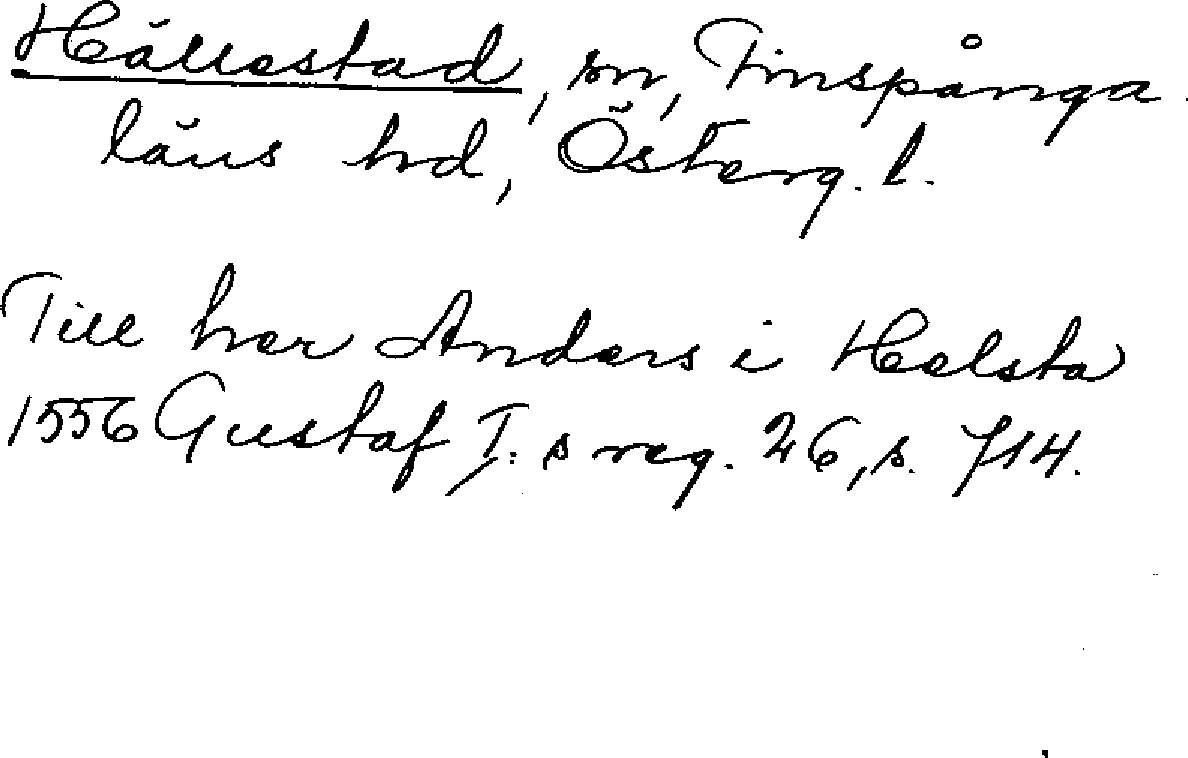 Hällestad, sn, Finspånga
läns hd, Österg. l.
Till her Anders i Helsta
1556 Gustaf I:s reg. 26, s. 714.